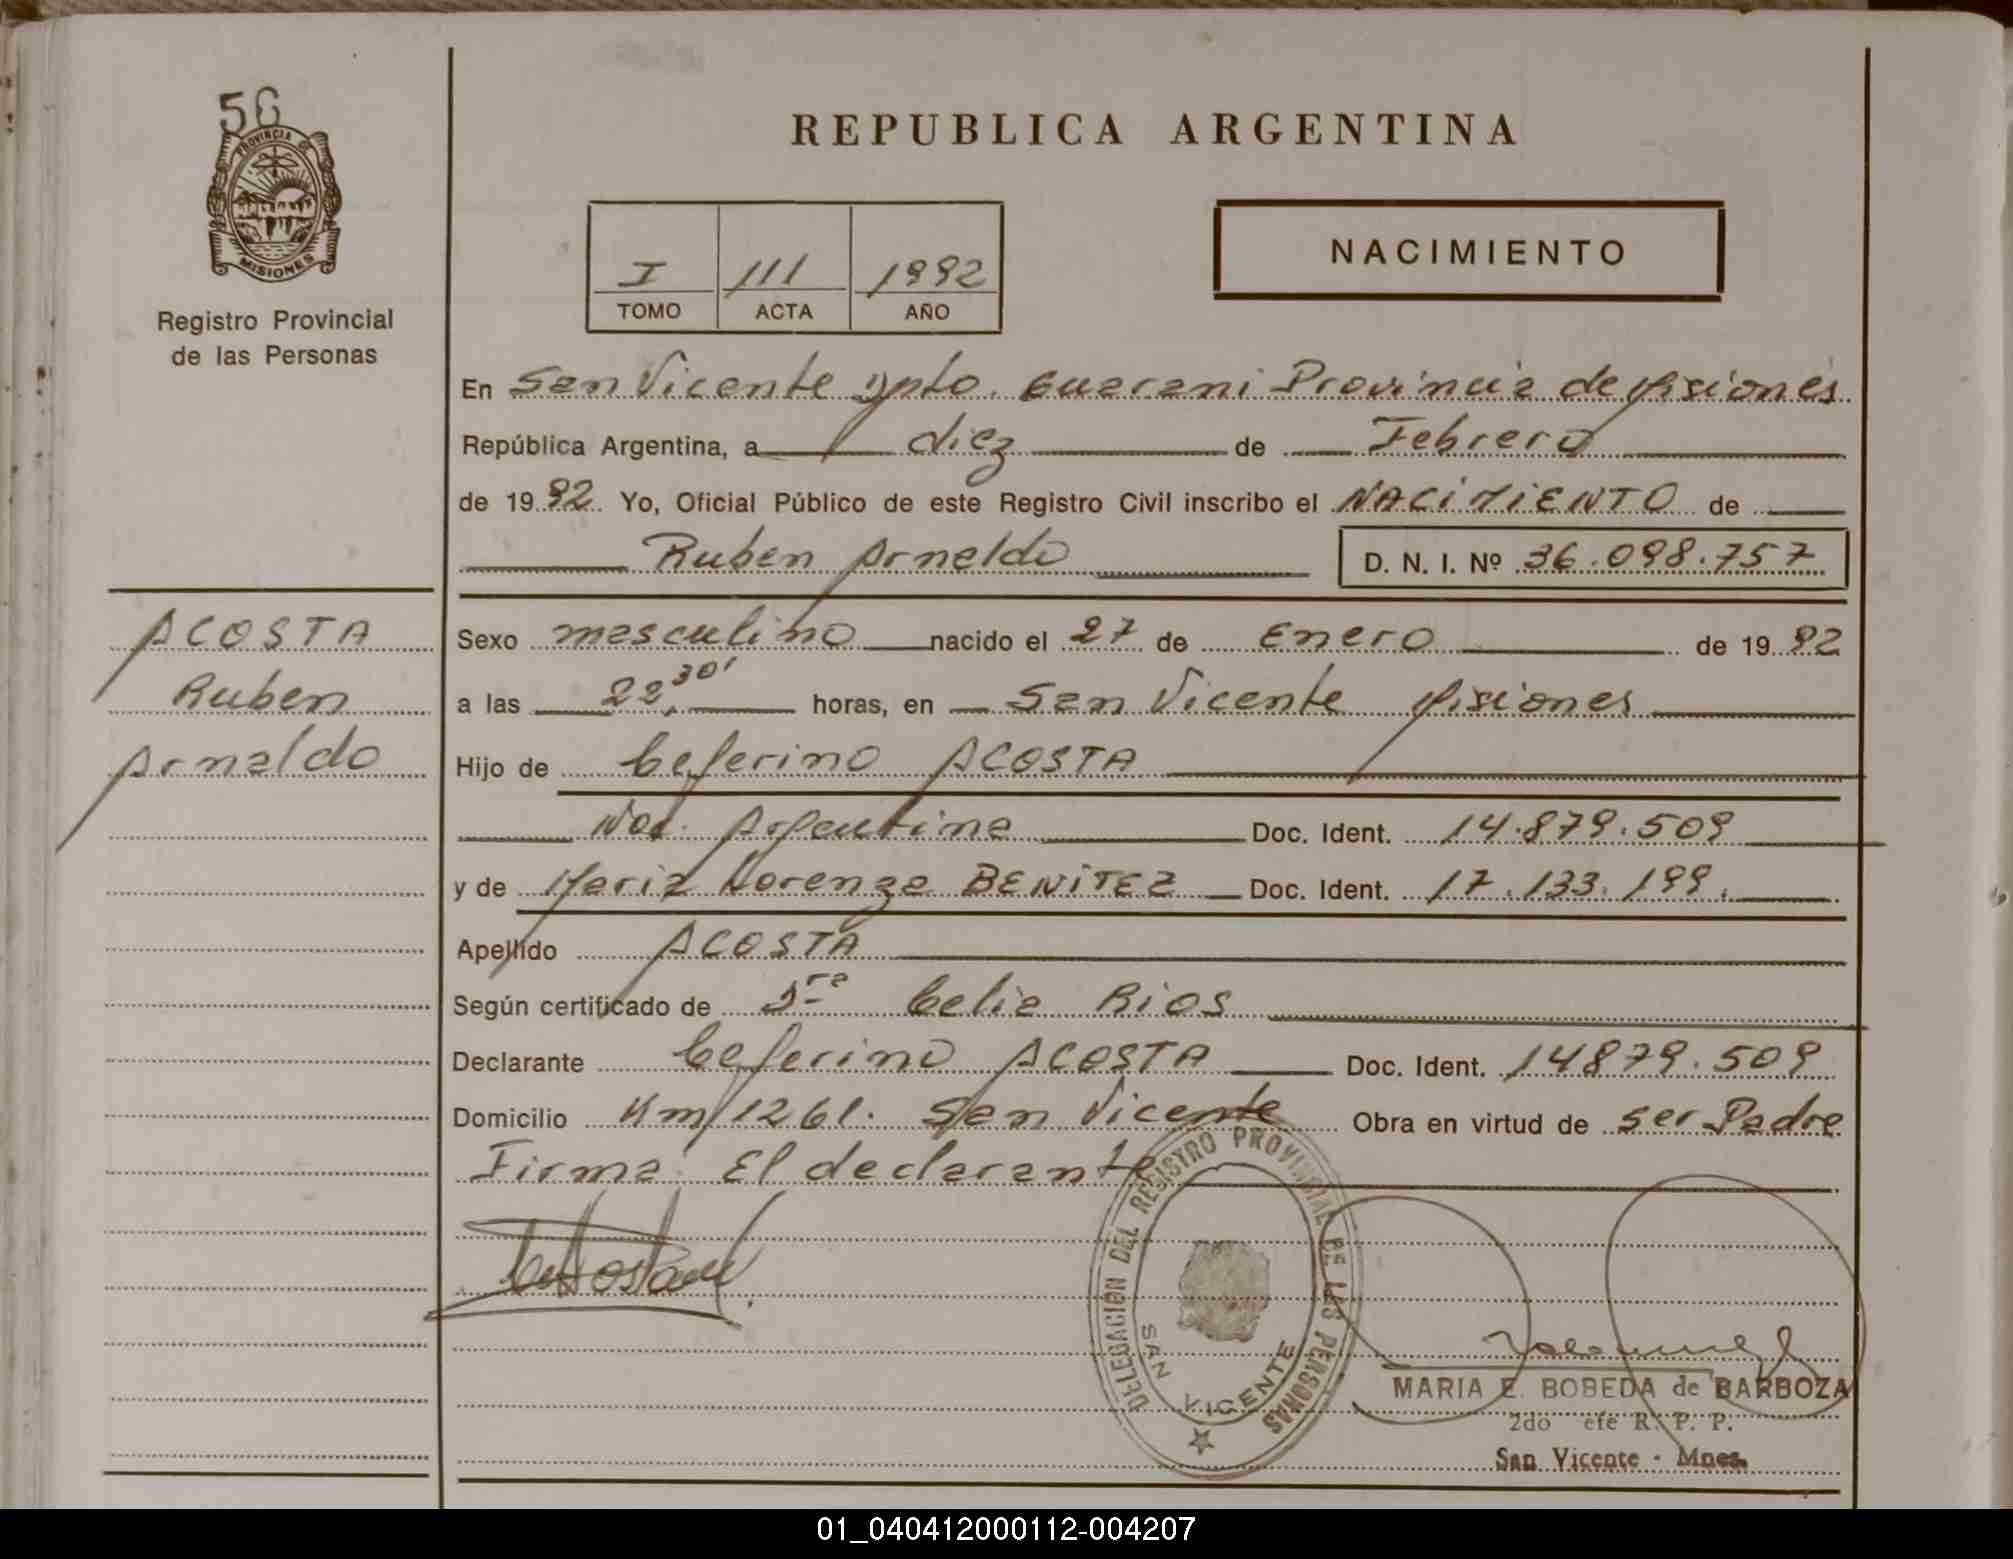 56
PROVINCIA DE
MISIONES
Registro Provincial
de las Personas
REPUBLICA ARGENTINA
I 111 1992
TOMO ACTA AÑO
NACIMIENTO
En San Vicente Dpto. Guarani Provincia de Misiones
República Argentina, a diez de Febrero
de 1992. Yo, Oficial Público de este Registro Civil inscribo el NACIMIENTO de
Ruben Arnaldo D. N. I. Nº 36.098.757
ACOSTA
Ruben
Arnaldo
Sexo masculino nacido el 27 de Enero de 1992
a las 22,30' horas, en San Vicente Misiones
Hijo de Ceferino ACOSTA
Nac. Argentina Doc. Ident. 14.879.509
y de Maria Lorenza BENITEZ Doc. Ident. 17.133.199.
Apellido ACOSTA
Según certificado de Celia Rios
Declarante Ceferino ACOSTA Doc. Ident. 14879.509
Domicilio Km 1261. San Vicente Obra en virtud de ser Padre
Firma: El declarante
DELEGACION DEL REGISTRO PROVINCIAL DE LAS PERSONAS
SAN VICENTE
MARIA E. BOBEDA de BARBOZA
2do efe R. P. P.
San Vicente - Mnes.
01_040412000112-004207